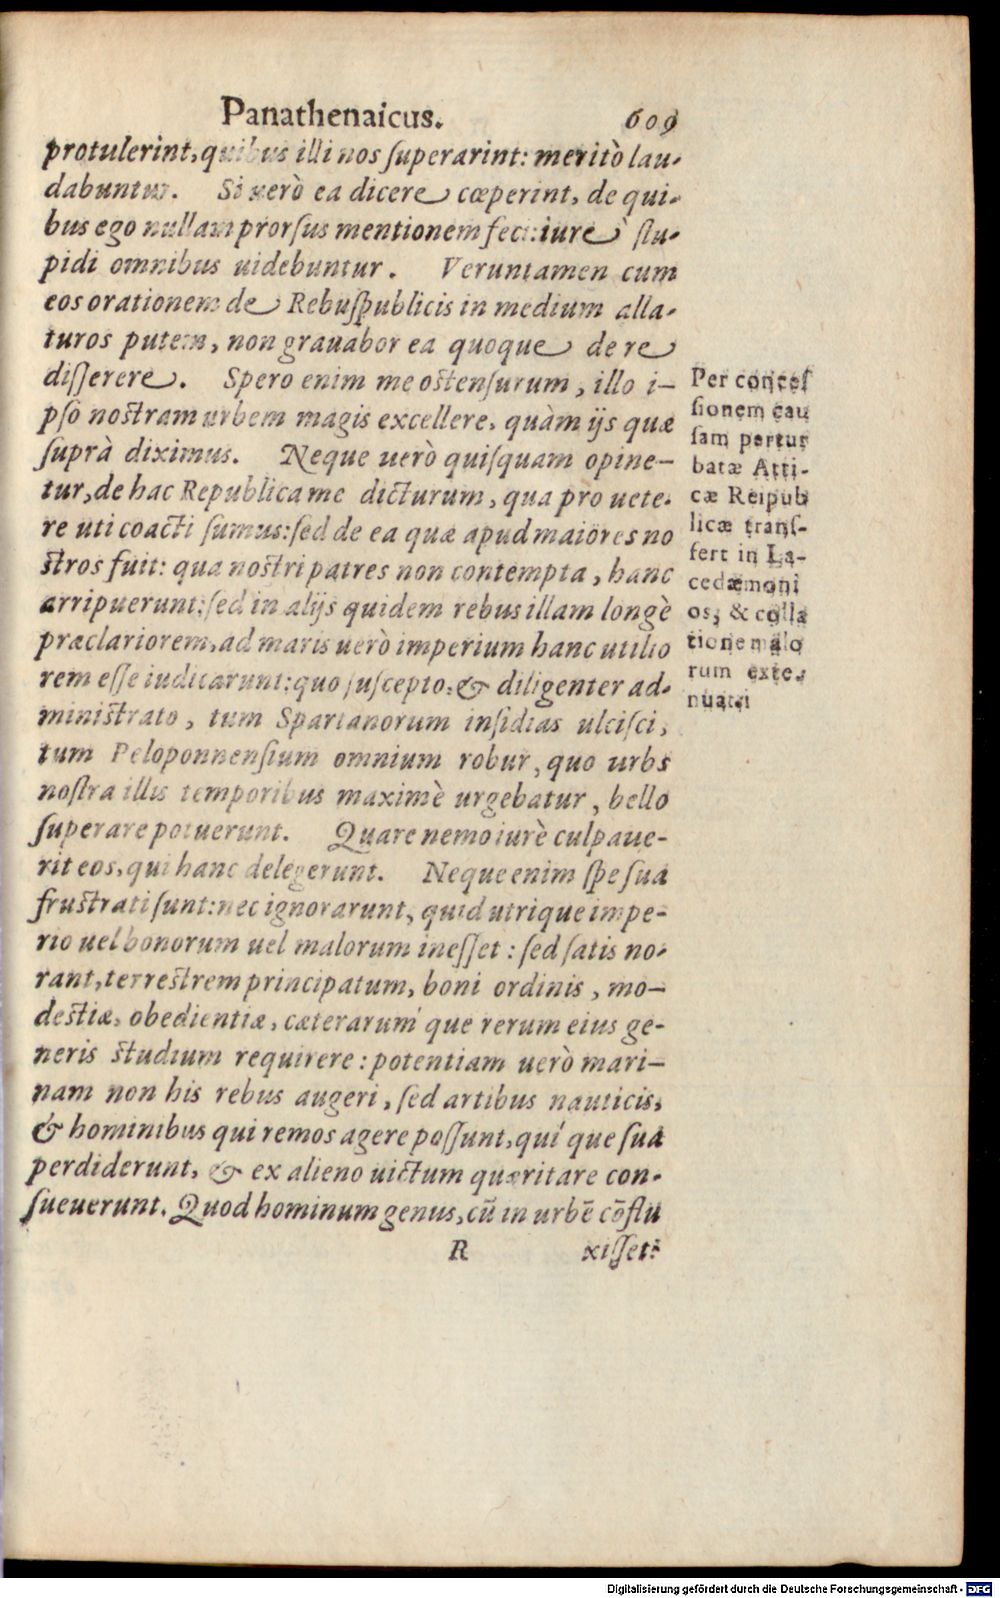 Panathenaicus. 609
protulerint, quibus illi nos ſuperarint: meritò lau-
dabuntur. Si uerò ea dicere cœperint, de qui-
bus ego nullam prorſus mentionem feci: iure ſtu-
pidi omnibus uidebuntur. Veruntamen cum
eos orationem de Rebuſpublicis in medium alla-
turos putem, non grauabor ea quoque de re
diſſerere. Spero enim me oſtenſurum, illo i-
pſo noſtram urbem magis excellere, quàm ijs quæ
ſuprà diximus. Neque uerò quiſquam opine-
tur, de hac Republica me dicturum, qua pro uete-
re uti coacti ſumus: ſed de ea quæ apud maiores no
ſtros fuit: qua noſtri patres non contempta, hanc
arripuerunt: ſed in alijs quidem rebus illam longè
præclariorem, ad maris uerò imperium hanc utilio
rem eſſe iudicarunt: quo ſuſcepto, & diligenter ad-
miniſtrato, tum Spartanorum inſidias ulciſci,
tum Peloponnenſium omnium robur, quo urbs
noſtra illis temporibus maximè urgebatur, bello
ſuperare potuerunt. Quare nemo iurè culpaue-
rit eos, qui hanc delegerunt. Neque enim ſpe ſua
fruſtrati ſunt: nec ignorarunt, quid utrique impe-
rio uel bonorum uel malorum ineſſet: ſed ſatis no-
rant, terreſtrem principatum, boni ordinis, mo-
deſtiæ, obedientiæ, cæterarum´ que rerum eius ge-
neris ſtudium requirere: potentiam uerò mari-
nam non his rebus augeri, ſed artibus nauticis,
& hominibus qui remos agere poſſunt, qui´ que ſua
perdiderunt, & ex alieno uictum quæritare con-
ſueuerunt. Quod hominum genus, cũ in urbẽ cõflu
R xiſſet:
Per conceſ
ſionem cau
ſam pertur
batæ Atti-
cæ Reipub
licæ tranſ-
fert in La-
cedæmoni
os, & colla
tione malo
rum exte-
nuat.
Digitalisierung gefördert durch die Deutsche Forschungsgemeinschaft - DFG